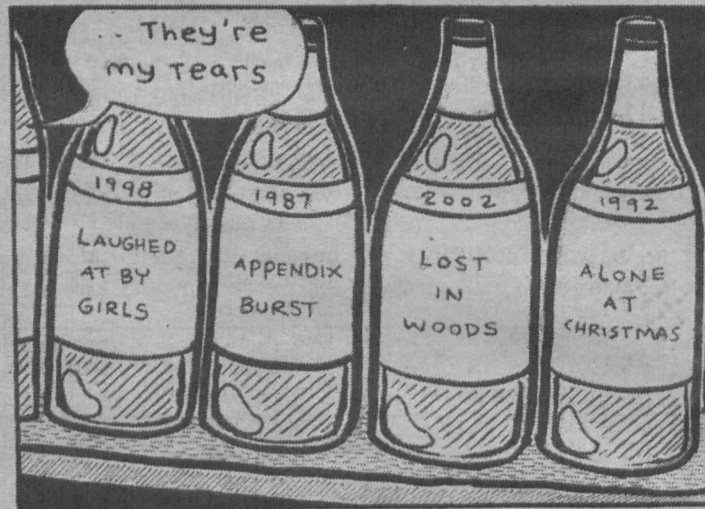 .. They're
my Tears
1998
LAUGHED
AT BY
GIRLS
1987
APPENDIX
BURST
2002
LOST
IN
WOODS
1992
ALONE
AT
CHRISTMAS